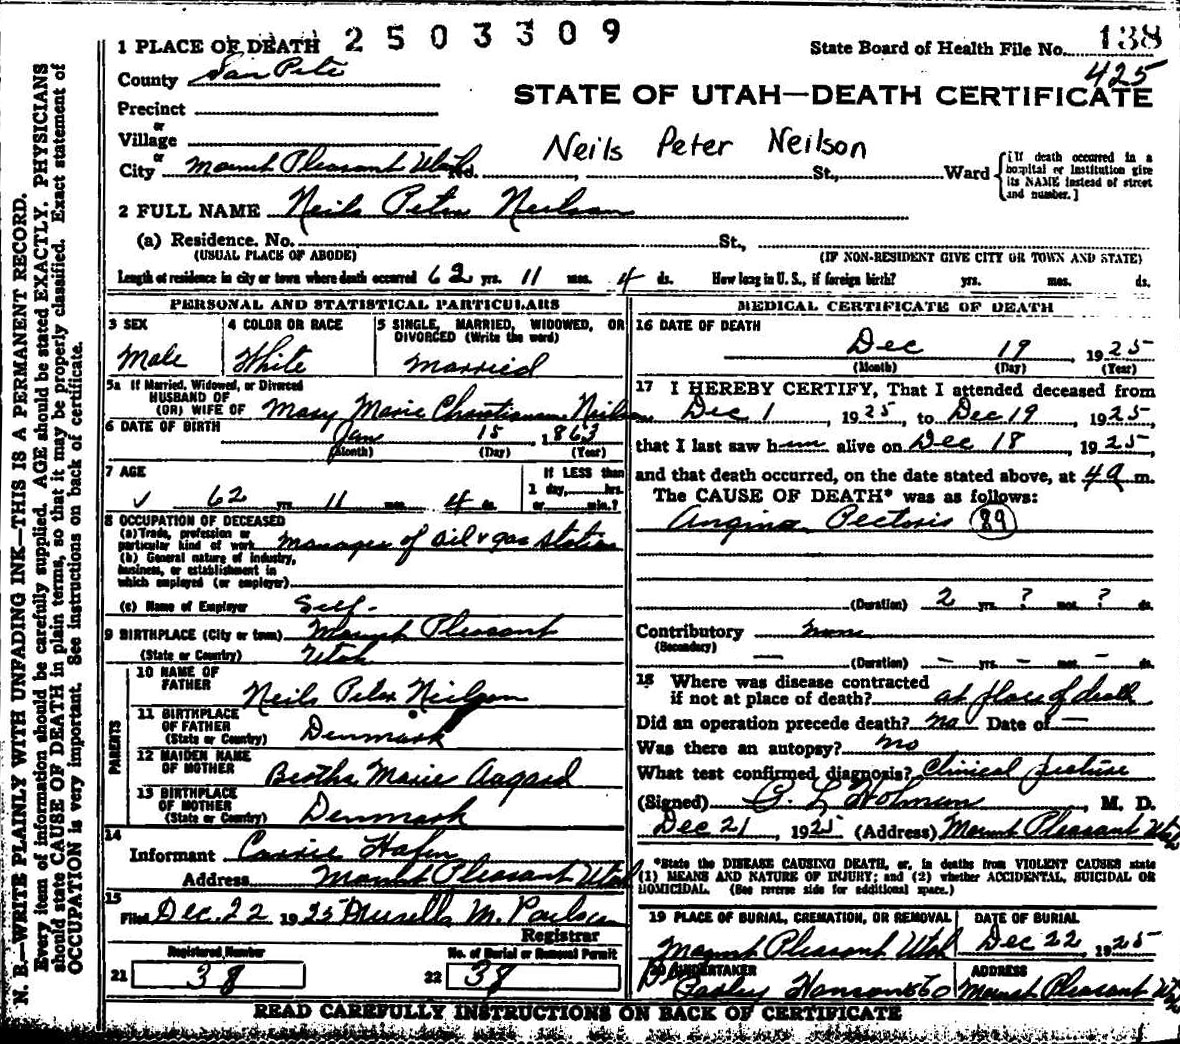 2503309
State Board of Health File No. 138
425
STATE OF UTAH—DEATH CERTIFICATE
1 PLACE OF DEATH
County San Pete
Precinct
or
Village
or
City Mount Pleasant Utah
Neils Peter Neilson
St., Ward
[If death occurred in a hospital or institution give its NAME instead of street and number.]
2 FULL NAME Neils Peter Neilson
(a) Residence. No. St.,
(USUAL PLACE OF ABODE) (IF NON-RESIDENT GIVE CITY OR TOWN AND STATE)
Length of residence in city or town where death occurred 62 yrs. 11 mos. 4 ds. How long in U. S., if foreign birth? yrs. mos. ds.
PERSONAL AND STATISTICAL PARTICULARS
3 SEX
Male
4 COLOR OR RACE
White
5 SINGLE, MARRIED, WIDOWED, OR DIVORCED (Write the word)
Married
5a If Married, Widowed, or Divorced
HUSBAND OF
(OR) WIFE OF Mary Marie Christiansen Neilson
6 DATE OF BIRTH Jan 15, 1863
(Month) (Day) (Year)
7 AGE
62 yrs. 11 mos. 4 ds.
If LESS than
1 day, hrs.
or min.?
8 OCCUPATION OF DECEASED
(a) Trade, profession or
particular kind of work manager of oil & gas station
(b) General nature of industry,
business, or establishment in
which employed (or employer)
(c) Name of Employer Self-
9 BIRTHPLACE (City or town) Mount Pleasant
(State or Country) Utah
PARENTS
10 NAME OF
FATHER Neils Peter Neilson
11 BIRTHPLACE
OF FATHER
(State or Country) Denmark
12 MAIDEN NAME
OF MOTHER Bertha Marie Aagard
13 BIRTHPLACE
OF MOTHER
(State or Country) Denmark
14
Informant Carrie Hafen
Address Mount Pleasant Utah
15
Filed Dec. 22 1925 M. Paulsen
Registrar
Registered Number
21 38
No. of Burial or Removal Permit
22 38
MEDICAL CERTIFICATE OF DEATH
16 DATE OF DEATH
Dec 19, 1925
(Month) (Day) (Year)
17 I HEREBY CERTIFY, That I attended deceased from
Dec 1, 1925, to Dec 19, 1925,
that I last saw him alive on Dec 18, 1925,
and that death occurred, on the date stated above, at 4 a m.
The CAUSE OF DEATH* was as follows:
Angina Pectoris 89
(Duration) 2 yrs. ? mos. ? ds.
Contributory none
(Secondary)
— (Duration) — yrs. — mos. — ds.
18 Where was disease contracted
if not at place of death? at place of death
Did an operation precede death? no Date of —
Was there an autopsy? no
What test confirmed diagnosis? Clinical picture
(Signed) G. L. Holman, M. D.
Dec 21, 1925 (Address) Mount Pleasant Utah
*State the DISEASE CAUSING DEATH, or, in deaths from VIOLENT CAUSES state
(1) MEANS AND NATURE OF INJURY; and (2) whether ACCIDENTAL, SUICIDAL OR
HOMICIDAL. (See reverse side for additional space.)
19 PLACE OF BURIAL, CREMATION, OR REMOVAL
Mount Pleasant Utah
DATE OF BURIAL
Dec 22, 1925
20 UNDERTAKER
Hanson
ADDRESS
Mount Pleasant Utah
READ CAREFULLY INSTRUCTIONS ON BACK OF CERTIFICATE
N. B.—WRITE PLAINLY WITH UNFADING INK—THIS IS A PERMANENT RECORD.
Every item of information should be carefully supplied. AGE should be stated EXACTLY. PHYSICIANS
should state CAUSE OF DEATH in plain terms, so that it may be properly classified. Exact statement of
OCCUPATION is very important. See instructions on back of certificate.